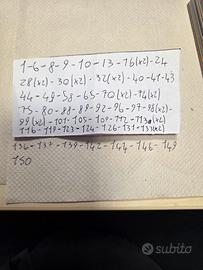 1-6-8-9-10-13-16(x2)-24
28(x2)-30(x2)-32(x2)-40-41-43
44-49-58-65-70(x2)-74(x2)
75-80-88-89-92-96-97-98(x2)-
99(x2)-101-105-109-112-113(x2)-
116-119-123-124-126-131-133(x2)
136-137-139-142-144-146-149
150
subito